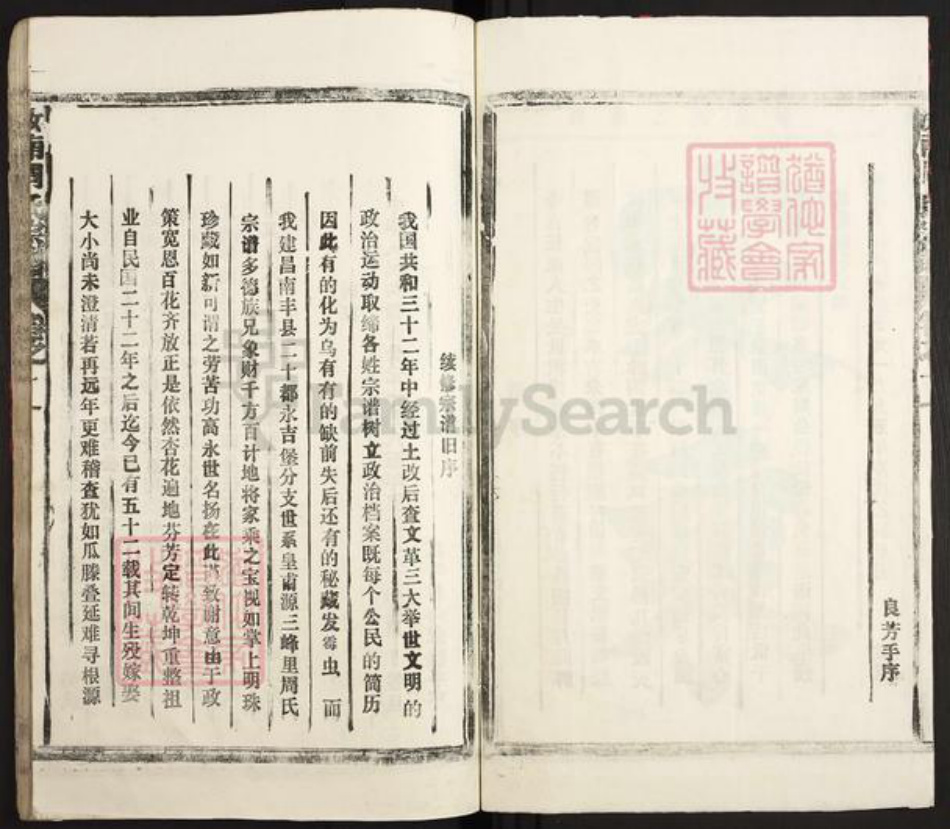 良芳手序
续修宗谱旧序
我国共和三十二年中经过土改后查文革三大举世文明的
政治运动取缔各姓宗谱树立政治档案既每个公民的简历
因此有的化为乌有有的缺前失后还有的秘藏发霉虫 而
我建昌南丰县二十都永吉堡分支世系皇甫源三峰里周氏
宗谱多德族兄象财千方百计地将家乘之宝视如掌上明珠
珍藏如新可谓之劳苦功高永世名扬在此 致谢意由于政
策宽恩百花齐放正是依然杏花遍地芬芳定转乾坤重整祖
业自民国二十二年之后迄今已有五十二载其间生殁嫁娶
大小尚未澄清若再远年更难稽查犹如瓜滕叠延难寻根源
汝南周氏
FamilySearch